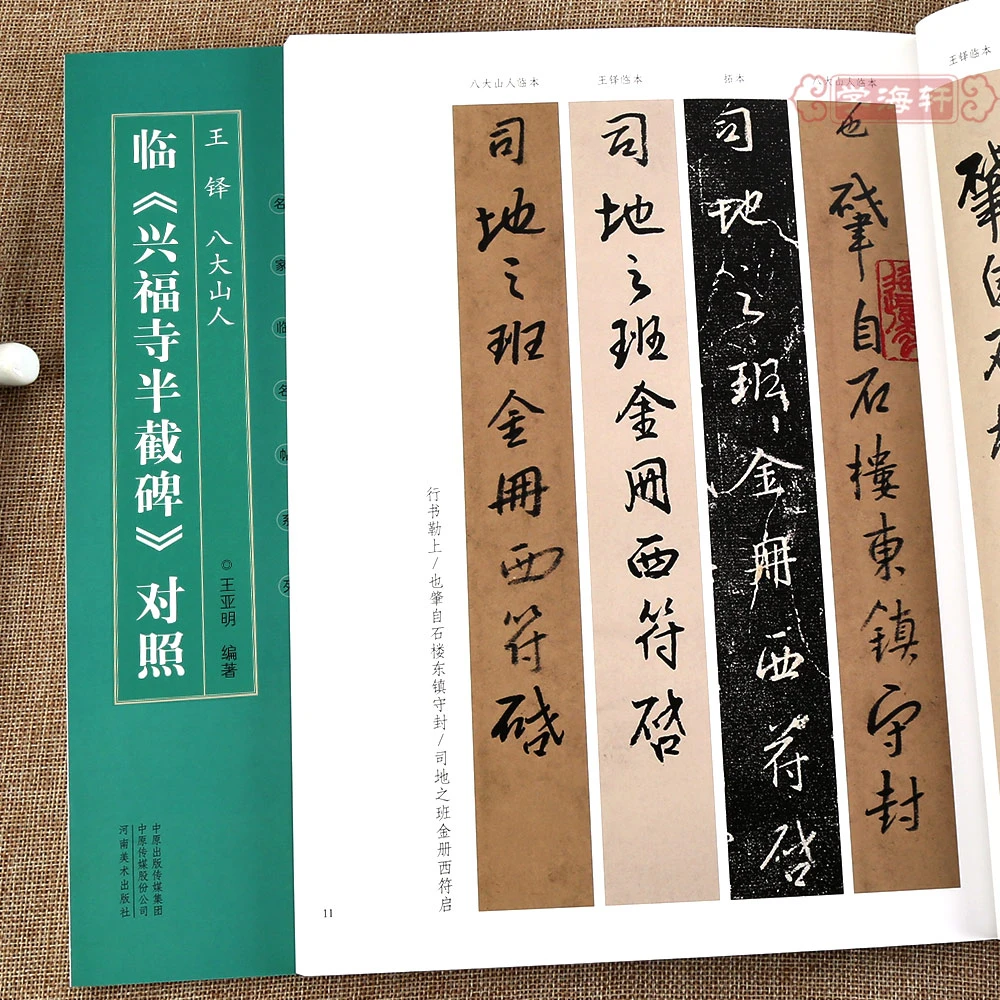 王铎 八大山人
临《兴福寺半截碑》对照
◎王亚明 编著
名家临名帖系列
中原出版传媒集团
中原传媒股份公司
河南美术出版社
学海轩
王铎临本
肇自石
八大山人临本
也肇自石樓東鎮守封
拓本
司地之班金冊西符啓
王铎临本
司地之班金冊西符啓
八大山人临本
司地之班金冊西符啓
行书勒上/也肇自石楼东镇守封/司地之班金册西符启
11